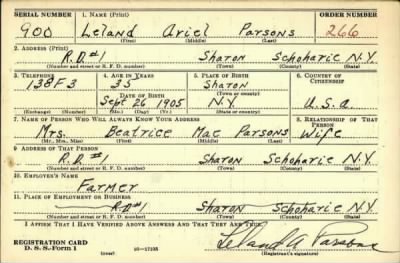 SERIAL NUMBER 1. NAME (Print) ORDER NUMBER
900 Leland Ariel Parsons 266
(First) (Middle) (Last)
2. ADDRESS (Print)
R.D.#1 Sharon Schoharie N.Y.
(Number and street or R. F. D. number) (Town) (County) (State)
3. TELEPHONE 4. AGE IN YEARS 5. PLACE OF BIRTH 6. COUNTRY OF CITIZENSHIP
138F3 35 Sharon
DATE OF BIRTH (Town or county)
Sept 26 1905 N.Y. U.S.A.
(Exchange) (Number) (Mo.) (Day) (Yr.) (State or country)
7. NAME OF PERSON WHO WILL ALWAYS KNOW YOUR ADDRESS 8. RELATIONSHIP OF THAT PERSON
Mrs. Beatrice Mae Parsons Wife
(Mr., Mrs., Miss) (First) (Middle) (Last)
9. ADDRESS OF THAT PERSON
R.D.#1 Sharon Schoharie N.Y.
(Number and street or R. F. D. number) (Town) (County) (State)
10. EMPLOYER'S NAME
Farmer
11. PLACE OF EMPLOYMENT OR BUSINESS
RD#1 Sharon Schoharie N.Y.
(Number and street or R. F. D. number) (Town) (County) (State)
I AFFIRM THAT I HAVE VERIFIED ABOVE ANSWERS AND THAT THEY ARE TRUE.
REGISTRATION CARD
D. S. S. Form 1 (over) 16—17105 Leland A Parsons
(Registrant's signature)